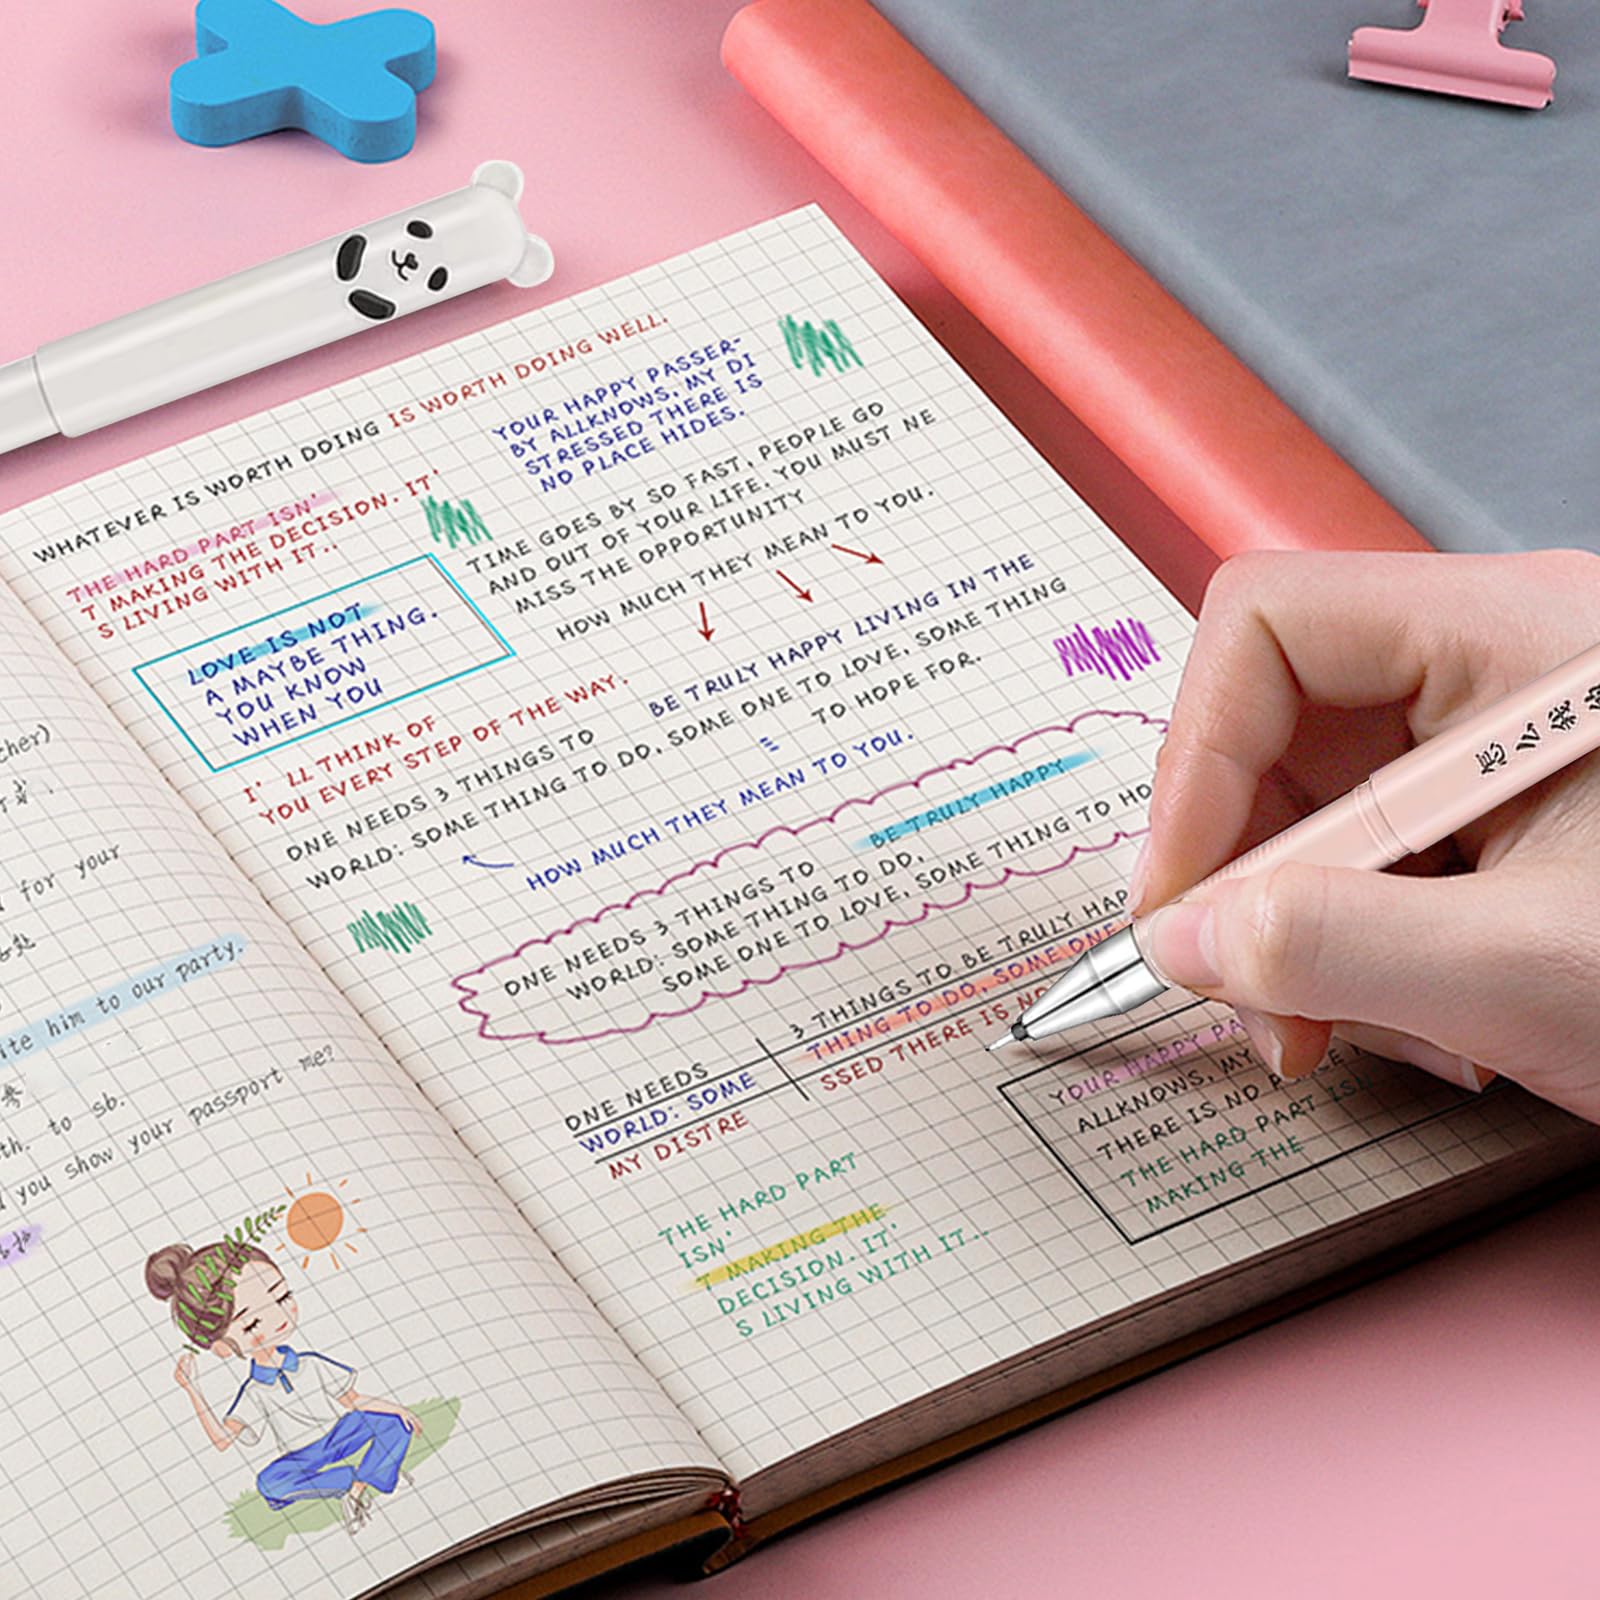 ther)
for your
ite him to our party.
th. to sb.
you show your passport me?
WHATEVER IS WORTH DOING IS WORTH DOING WELL.
THE HARD PART ISN'
T MAKING THE DECISION. IT'
S LIVING WITH IT..
YOUR HAPPY PASSER-
BY ALLKNOWS, MY DI
STRESSED THERE IS
NO PLACE HIDES.
TIME GOES BY SO FAST, PEOPLE GO
AND OUT OF YOUR LIFE. YOU MUST NE
MISS THE OPPORTUNITY
HOW MUCH THEY MEAN TO YOU.
LOVE IS NOT
A MAYBE THING.
YOU KNOW
WHEN YOU
BE TRULY HAPPY LIVING IN THE
I' LL THINK OF
YOU EVERY STEP OF THE WAY.
ONE NEEDS 3 THINGS TO
WORLD: SOME THING TO DO, SOME ONE TO LOVE, SOME THING
TO HOPE FOR.
HOW MUCH THEY MEAN TO YOU.
BE TRULY HAPPY
ONE NEEDS 3 THINGS TO
WORLD: SOME THING TO DO,
SOME ONE TO LOVE, SOME THING TO HO
ONE NEEDS 3 THINGS TO BE TRULY HAP
WORLD: SOME THING TO DO, SOME ONE
MY DISTRE SSED THERE IS NO
YOUR HAPPY PA
ALLKNOWS, MY
THERE IS NO PLACE
THE HARD PART ISN
MAKING THE
THE HARD PART
ISN'
T MAKING THE
DECISION. IT'
S LIVING WITH IT..